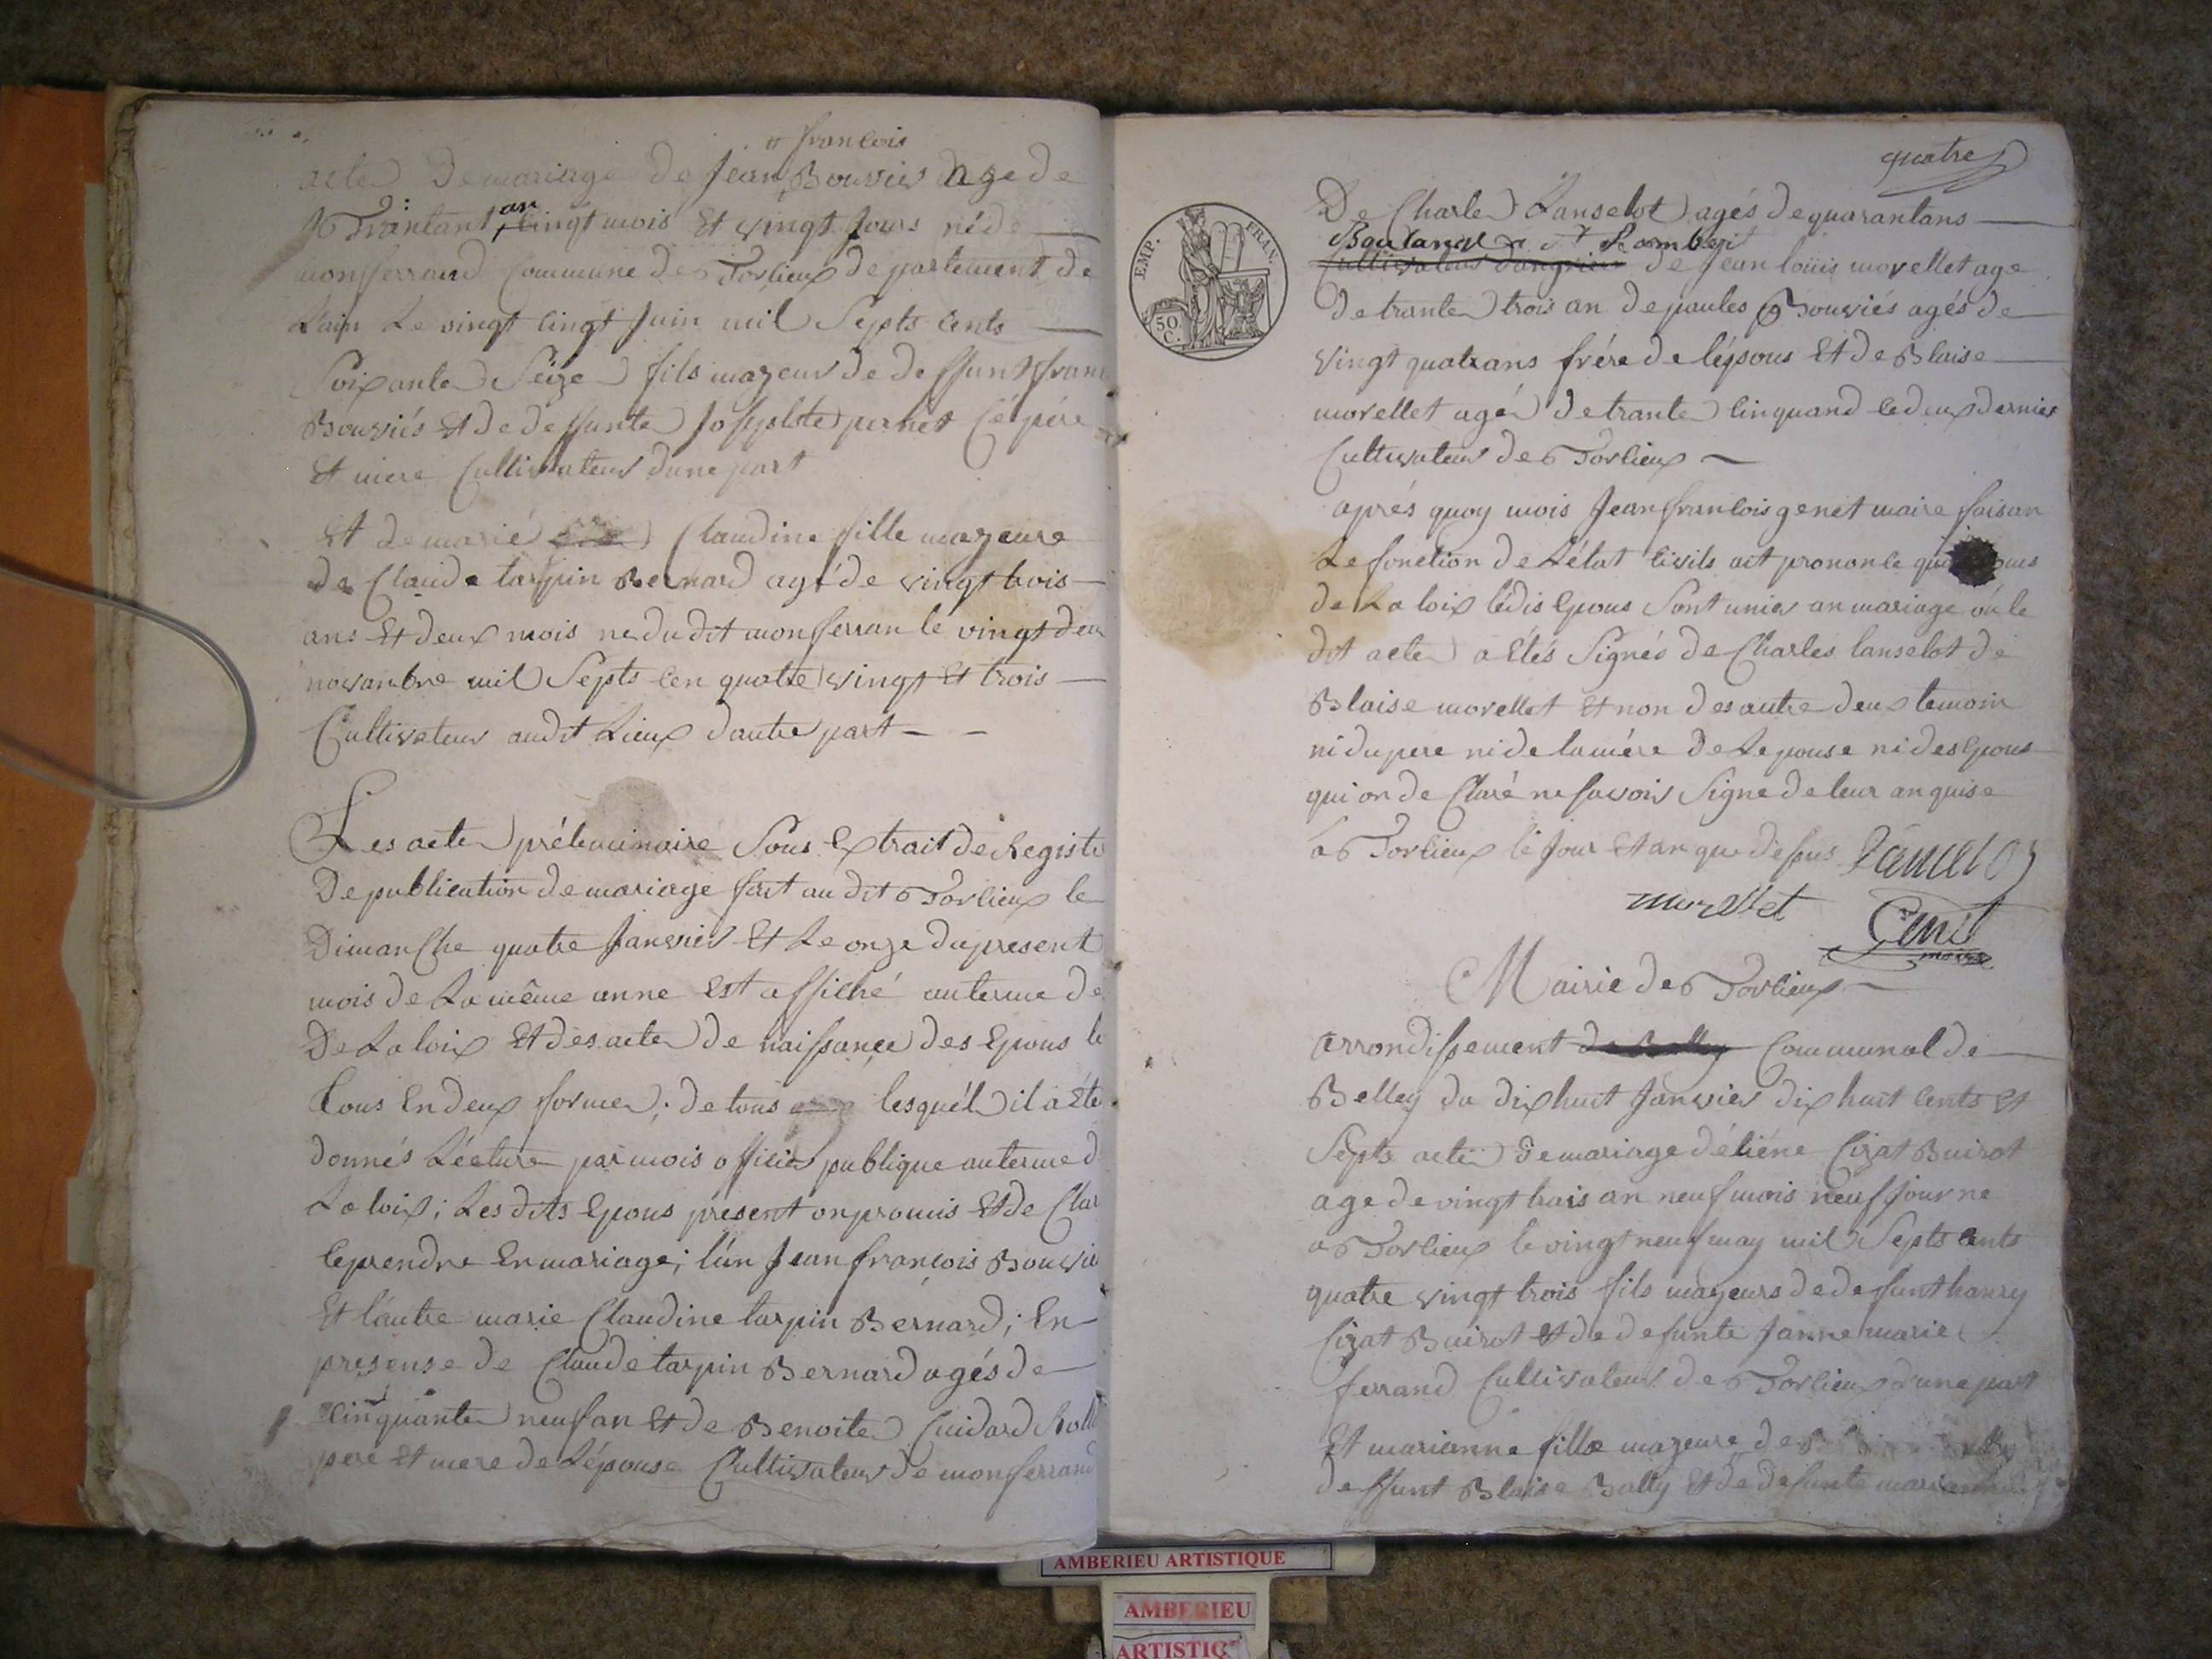 françois
acte de mariage de Jean Bouvier age de
Trantant an cingt mois et vingt Jours né de
monferrand Commune de Torlieux departement de
Lain Le vingt cingt Juin mil Septs cents
Soixante Seize fils mageur de deffunt fran
Bouviés et de deffunte Josephte pernet Cé pére
et mere Cultivateur dune part
et de marié Claudine fille mageure
de Claude tarpin Bernard agé de vingt trois
ans et deux mois ne du dit monferran le vingt deu
novanbre mil Septs cen quatre vingt et trois
Cultivateur audit Lieux dautre part
Les acte préleminaire Sous Extrait de Registe
De publication de mariage fait au dit Torlieux le
Dimanche quatre Janvier et Le onze du present
mois de La même anne est affiché auterme de
De La loix et des acte de naissance des Epous le
tous En deux forme; de tous lesquél il a été
donnés Lécture par mois officier publique auterme d
La loix; Les dits Epous présent on promis et de Clar
ce prendre En mariage; lún Jean françois Bouvie
et láutre marie Claudine tarpin Bernard; En
presense de Claude tarpin Bernard agés de
Cinquante neuf an et de Benoite Cuidard
pere et mere de Lépouse Cultivateur de monferrand
quatre
EMP. FRAN.
50 C.
De Charle Lanselot agés de quarantans
Boulangé a St Rambert
Cultivateur de Jean loüis morellet age
de trante trois an de paules Bouviés agés de
vingt quatrans frére de lépous et de Blaise
morellet agé de trante cinquand ce deux dernier
Cultivateur de Torlieux
aprés quoy mois Jean francois genet maire faisan
Le fonction de Létat Civils ait prononce
de La loix lédis Epous Sont unier an mariage óu le
dit acte a étés Signés de Charles lanselot de
Blaise morellet et non des autre deux temoin
ni du pere ni de lamére de Lepouse ni des Epous
qui on de Claré ne savoir Signe de leur an quise
a Torlieux le Jour et an que desus Lancelot
morellet Genet
maire
Mairie de Torlieux
arrondissement de Belley Communal de
Belley du dix huit Janvier dix huit cents et
Septs acte de mariage détiéne Cizat Buirot
age de vingt trais an neuf mois neuf jour ne
a Torlieux le vingt neuf may mil Septs cents
quatre vingt trois fils mageurs de defunt hanry
Cizat Buirot et de defunte Janne marie
ferrand Cultivateur de Torlieux dune part
et marianne fille mageure de
deffunt Blaise Bally et de defunte marianne
AMBERIEU ARTISTIQUE
AMBERIEU
ARTISTIQ